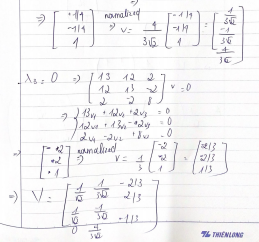 ⇒ [-1/4, -1/4, 1] normalized ⇒ v = 4/3√2 [-1/4, 1/4, 1] = [1/3√2, -1/3√2, 4/3√2]
λ₃ = 0 ⇒ [13 12 2, 12 13 -2, 2 -2 8] v = 0
⇒ { 13v₁ + 12v₂ + 2v₃ = 0
12v₁ + 13v₂ - 2v₃ = 0
2v₁ - 2v₂ + 8v₃ = 0
⇒ [-2, 2, 1] normalized ⇒ v = 1/3 [-2, 2, 1] = [-2/3, 2/3, 1/3]
⇒ V = [1/√2 1/3√2 -2/3, 1/√2 -1/3√2 2/3, 0 4/3√2 -1/3]
THIENLONG